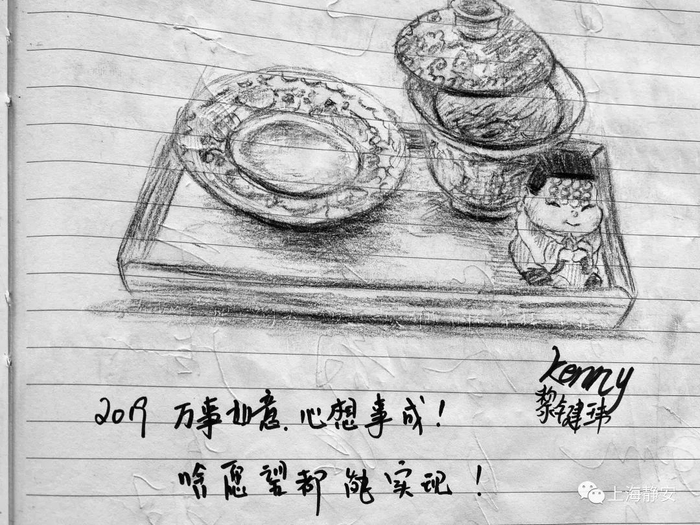 Kenny
黎键玮
2019 万事如意.心想事成!
啥愿望都能实现!
上海静安